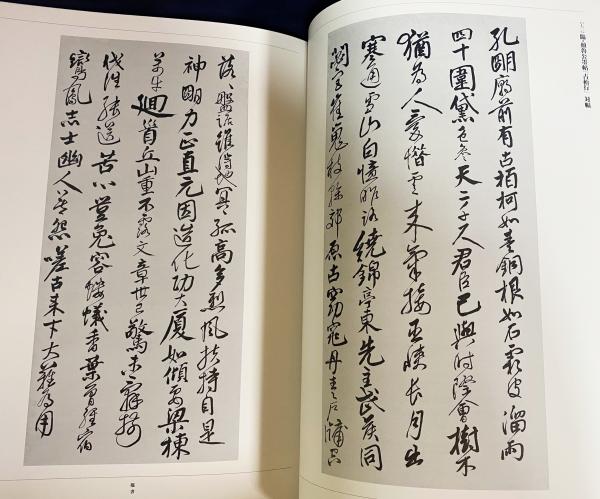 孔明廟前有古栢柯如青銅根如石霜皮溜雨
四十圍黛色參天二千尺君臣已與時際會樹木
猶為人愛惜雲来氣接巫峽長月出
寒通雪山白憶昨路繞錦亭東先主武侯同
閟宮崔嵬枝幹郊原古窈窕丹青戶牖空
落落盤踞雖得地冥冥孤高多烈風扶持自是
神明力正直元因造化功大廈如傾要梁棟
萬牛迴首丘山重不露文章世已驚未辭翦
伐誰能送苦心豈免容螻蟻香葉曾經宿
鸞鳳志士幽人莫怨嗟古来材大難為用